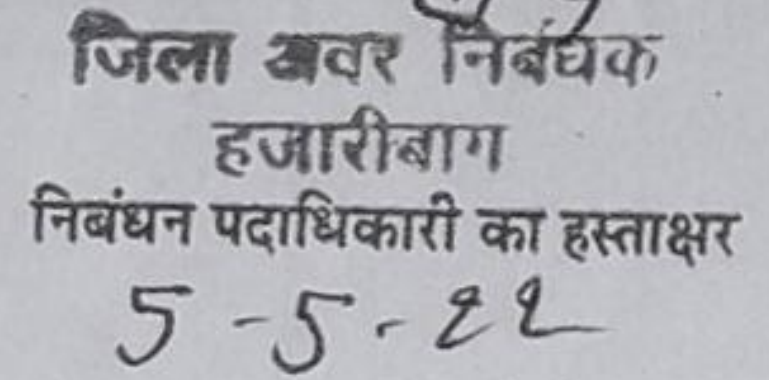 जिला अवर निबंधक
हजारीबाग
निबंधन पदाधिकारी का हस्ताक्षर
5-5-22